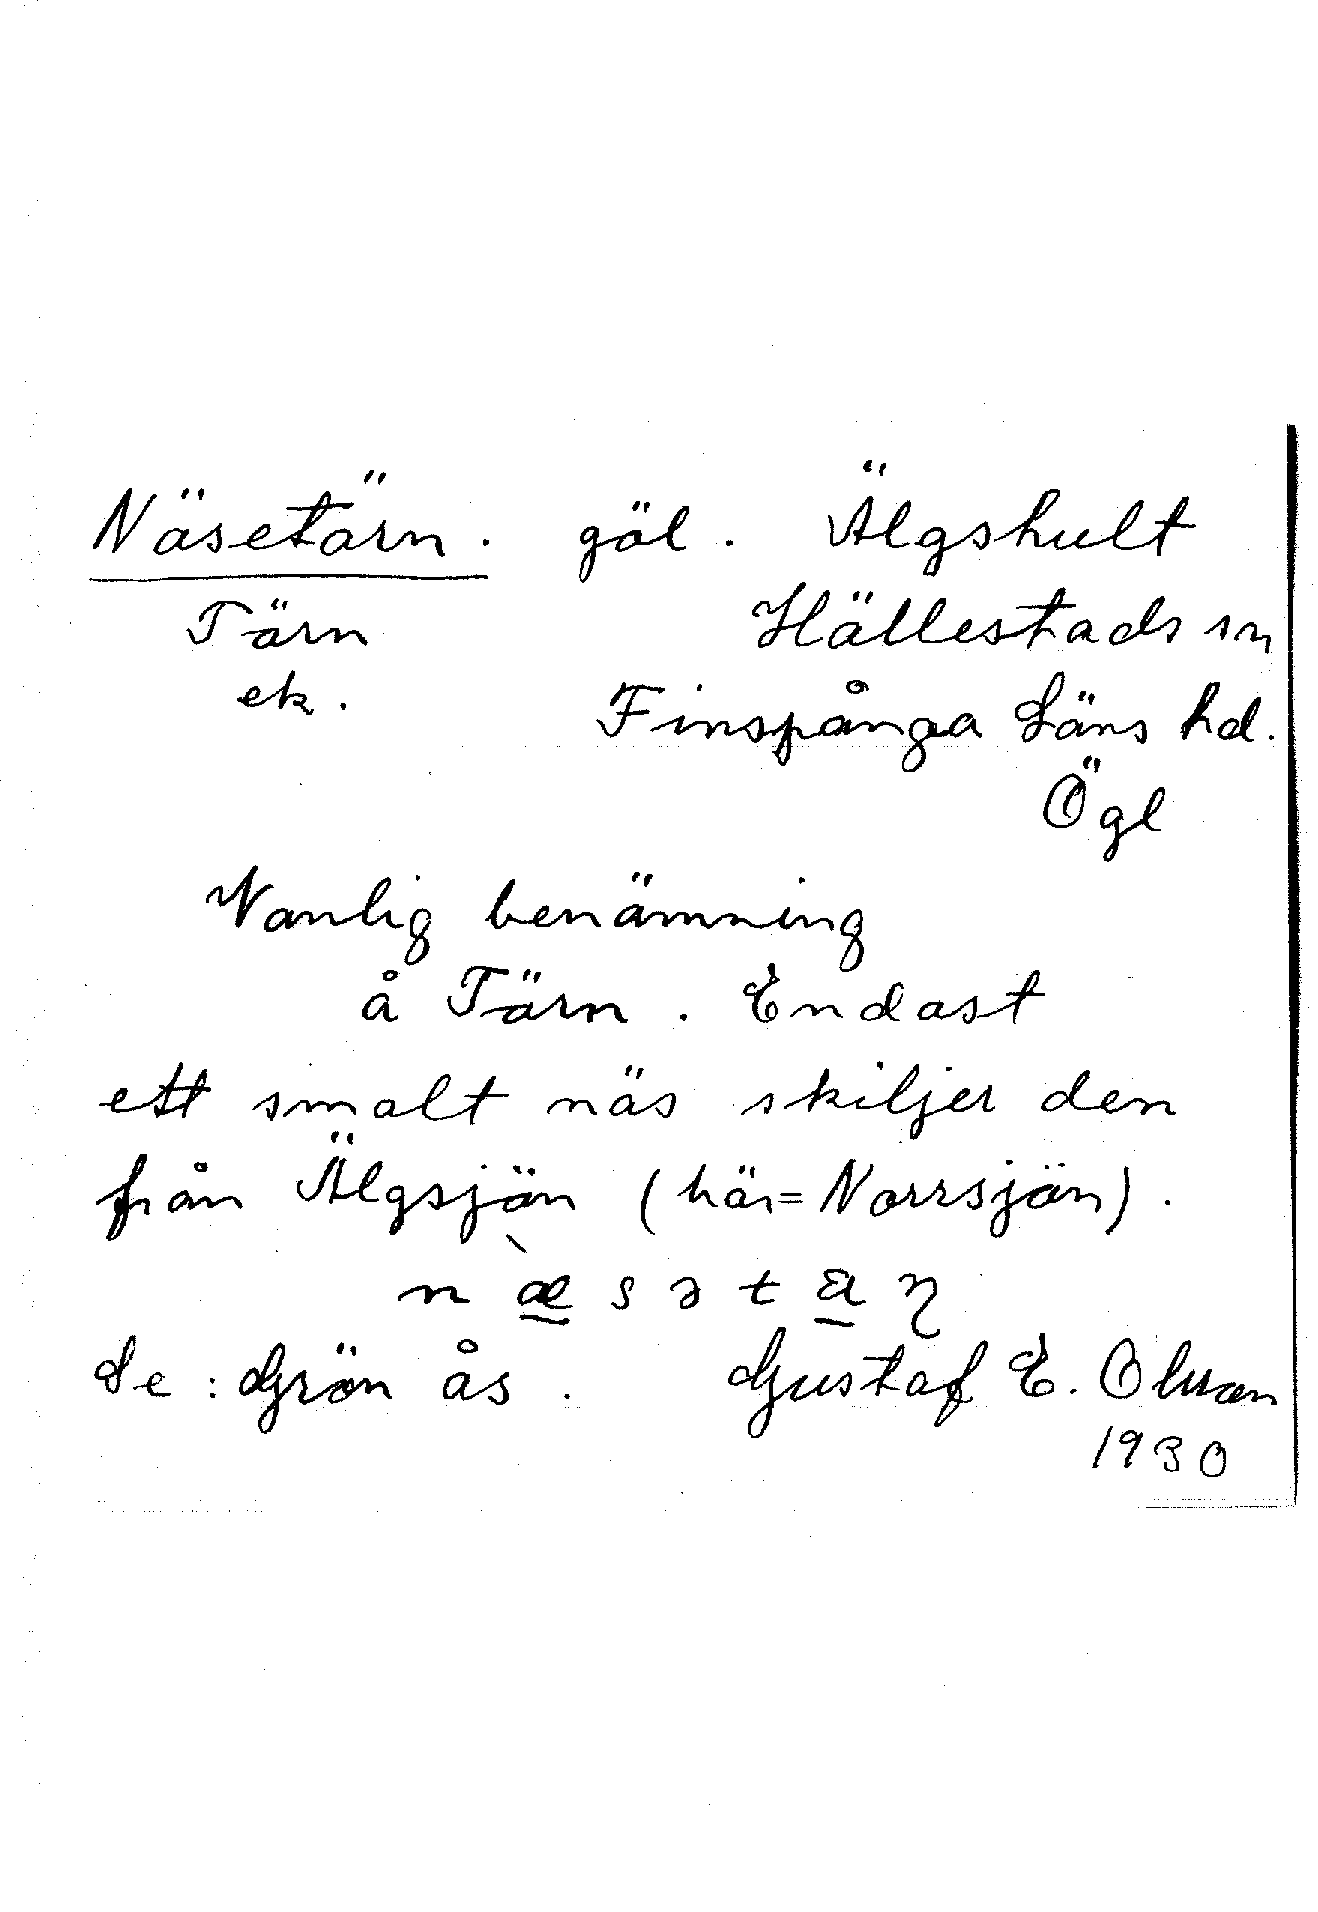 Näsetärn. göl. Älgshult
Tärn Hällestads sn
ek. Finspånga Läns hd.
Ögl
Vanlig benämning
å Tärn. Endast
ett smalt näs skiljer den
från Älgsjön (här=Norrsjön).
Se: Grön ås. Gustaf E. Olsson
1930